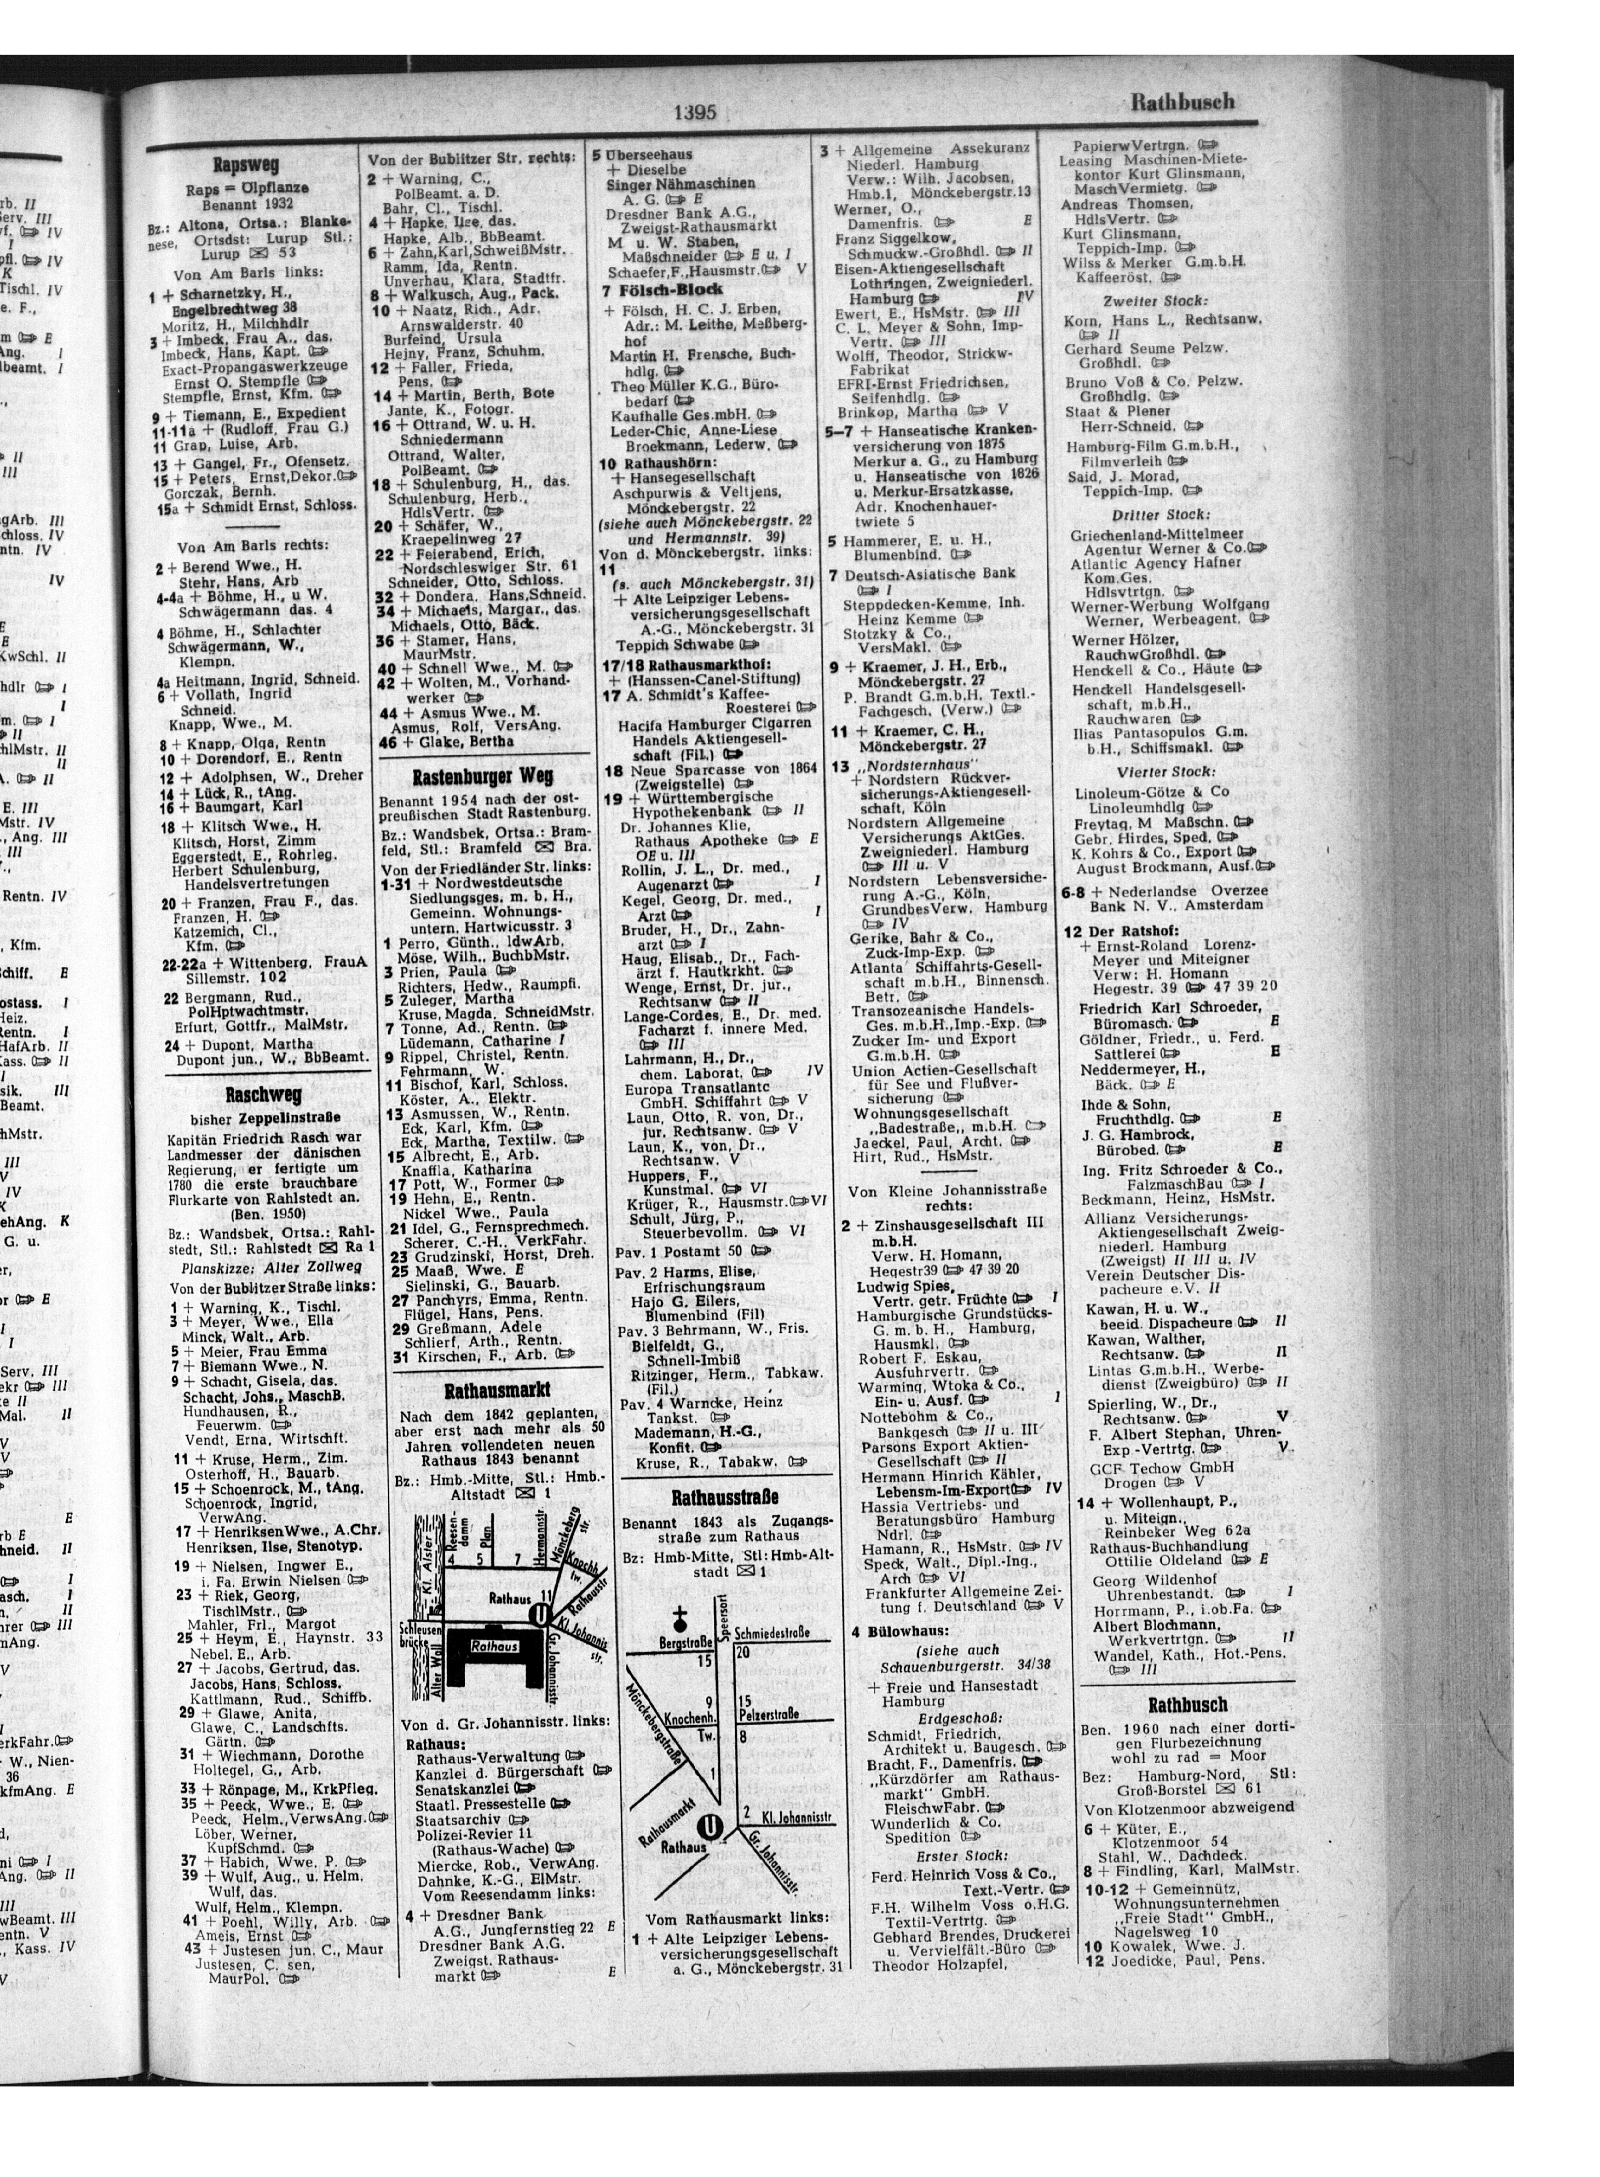 1395
Rathbusch
Rapsweg
Raps = Ölpflanze
Benannt 1932
Bz.: Altona, Ortsa.: Blanke-
nese, Ortsdst: Lurup Stl.:
Lurup ✉ 53
Von Am Barls links:
1 + Scharnetzky, H.,
Engelbrechtweg 38
Moritz, H., Milchhdlr
3 + Imbeck, Frau A., das.
Imbeck, Hans, Kapt.
Exact-Propangaswerkzeuge
Ernst O. Stempfle
Stempfle, Ernst, Kfm.
9 + Tiemann, E., Expedient
11-11a + (Rudloff, Frau G.)
11 Grap, Luise, Arb.
13 + Gangel, Fr., Ofensetz.
15 + Peters, Ernst, Dekor.
Gorczak, Bernh.
15a + Schmidt Ernst, Schloss.
Von Am Barls rechts:
2 + Berend Wwe., H.
Stehr, Hans, Arb
4-4a + Böhme, H., u W.
Schwägermann das. 4
4 Böhme, H., Schlachter
Schwägermann, W.,
Klempn.
4a Heitmann, Ingrid, Schneid.
6 + Vollath, Ingrid
Schneid.
Knapp, Wwe., M.
8 + Knapp, Olga, Rentn
10 + Dorendorf, E., Rentn
12 + Adolphsen, W., Dreher
14 + Lück, R., tAng.
16 + Baumgart, Karl
18 + Klitsch Wwe., H.
Klitsch, Horst, Zimm
Eggerstedt, E., Rohrleg.
Herbert Schulenburg,
Handelsvertretungen
20 + Franzen, Frau F., das.
Franzen, H.
Katzemich, Cl.,
Kfm.
22-22a + Wittenberg, FrauA
Sillemstr. 102
22 Bergmann, Rud.,
PolHptwachtmstr.
Erfurt, Gottfr., MalMstr.
24 + Dupont, Martha
Dupont jun., W., BbBeamt.
Raschweg
bisher Zeppelinstraße
Kapitän Friedrich Rasch war
Landmesser der dänischen
Regierung, er fertigte um
1780 die erste brauchbare
Flurkarte von Rahlstedt an.
(Ben. 1950)
Bz.: Wandsbek, Ortsa.: Rahl-
stedt, Stl.: Rahlstedt ✉ Ra 1
Planskizze: Alter Zollweg
Von der Bublitzer Straße links:
1 + Warning, K., Tischl.
3 + Meyer, Wwe., Ella
Minck, Walt., Arb.
5 + Meier, Frau Emma
7 + Biemann Wwe., N.
9 + Schacht, Gisela, das.
Schacht, Johs., MaschB.
Hundhausen, R.,
Feuerwm.
Vendt, Erna, Wirtschft.
11 + Kruse, Herm., Zim.
Osterhoff, H., Bauarb.
15 + Schoenrock, M., tAng.
Schoenrock, Ingrid,
VerwAng.
17 + HenriksenWwe., A.Chr.
Henriksen, Ilse, Stenotyp.
19 + Nielsen, Ingwer E.,
i. Fa. Erwin Nielsen
23 + Riek, Georg,
TischlMstr.,
Mahler, Frl., Margot
25 + Heym, E., Haynstr. 33
Nebel, E., Arb.
27 + Jacobs, Gertrud, das.
Jacobs, Hans, Schloss.
Kattlmann, Rud., Schiffb.
29 + Glawe, Anita,
Glawe, C., Landschfts.
Gärtn.
31 + Wiechmann, Dorothe
Holtegel, G., Arb.
33 + Rönpage, M., KrkPfleg.
35 + Peeck, Wwe., E.
Peeck, Helm., VerwsAng.
Löber, Werner,
KupfSchmd.
37 + Habich, Wwe. P.
39 + Wulf, Aug., u. Helm.
Wulf, das.
Wulf, Helm., Klempn.
41 + Poehl, Willy, Arb.
Ameis, Ernst
43 + Justesen jun. C., Maur
Justesen, C. sen,
MaurPol.
Von der Bublitzer Str. rechts:
2 + Warning, C.,
PolBeamt. a. D.
Bahr, Cl., Tischl.
4 + Hapke, Ilse, das.
Hapke, Alb., BbBeamt.
6 + Zahn, Karl, SchweißMstr.
Ramm, Ida, Rentn.
Unverhau, Klara, Stadtfr.
8 + Walkusch, Aug., Pack.
10 + Naatz, Rich., Adr.
Arnswalderstr. 40
Burfeind, Ursula
Hejny, Franz, Schuhm.
12 + Faller, Frieda,
Pens.
14 + Martin, Berth, Bote
Jante, K., Fotogr.
16 + Ottrand, W. u. H.
Schniedermann
Ottrand, Walter,
PolBeamt.
18 + Schulenburg, H., das.
Schulenburg, Herb.,
HdlsVertr.
20 + Schäfer, W.,
Kraepelinweg 27
22 + Feierabend, Erich,
Nordschleswiger Str. 61
Schneider, Otto, Schloss.
32 + Dondera, Hans, Schneid.
34 + Michaels, Margar., das.
Michaels, Otto, Bäck.
36 + Stamer, Hans,
MaurMstr.
40 + Schnell Wwe., M.
42 + Wolten, M., Vorhand-
werker
44 + Asmus Wwe., M.
Asmus, Rolf, VersAng.
46 + Glake, Bertha
Rastenburger Weg
Benannt 1954 nach der ost-
preußischen Stadt Rastenburg.
Bz.: Wandsbek, Ortsa.: Bram-
feld, Stl.: Bramfeld ✉ Bra.
Von der Friedländer Str. links:
1-31 + Nordwestdeutsche
Siedlungsges. m. b. H.,
Gemeinn. Wohnungs-
untern. Hartwicusstr. 3
1 Perro, Günth., ldwArb.
Möse, Wilh., BuchbMstr.
3 Prien, Paula
Richters, Hedw., Raumpfl.
5 Zuleger, Martha
Kruse, Magda, SchneidMstr.
7 Tonne, Ad., Rentn.
Lüdemann, Catharine I
9 Rippel, Christel, Rentn.
Fehrmann, W.
11 Bischof, Karl, Schloss.
Köster, A., Elektr.
13 Asmussen, W., Rentn.
Eck, Karl, Kfm.
Eck, Martha, Textilw.
15 Albrecht, E., Arb.
Knaffla, Katharina
17 Pott, W., Former
19 Hehn, E., Rentn.
Nickel Wwe., Paula
21 Idel, G., Fernsprechmech.
Scherer, C.-H., VerkFahr.
23 Grudzinski, Horst, Dreh.
25 Maaß, Wwe. E
Sielinski, G., Bauarb.
27 Panchyrs, Emma, Rentn.
Flügel, Hans, Pens.
29 Greßmann, Adele
Schlierf, Arth., Rentn.
31 Kirschen, F., Arb.
Rathausmarkt
Nach dem 1842 geplanten,
aber erst nach mehr als 50
Jahren vollendeten neuen
Rathaus 1843 benannt
Bz.: Hmb.-Mitte, Stl.: Hmb.-
Altstadt ✉ 1
Kl. Alster
Reesen-
damm
Plan
Hermannstr.
Mönckeberg
str.
4 5 7
Knochh.
tw.
Rathausstr
Rathaus 11
U
Schleusen
brücke
Kl. Johannis
str.
Rathaus
Alter Wall
Gr. Johannisstr.
Von d. Gr. Johannisstr. links:
Rathaus:
Rathaus-Verwaltung
Kanzlei d. Bürgerschaft
Senatskanzlei
Staatl. Pressestelle
Staatsarchiv
Polizei-Revier 11
(Rathaus-Wache)
Miercke, Rob., VerwAng.
Dahnke, K.-G., ElMstr.
Vom Reesendamm links:
4 + Dresdner Bank
A.G., Jungfernstieg 22 E
Dresdner Bank A.G.
Zweigst. Rathaus-
markt E
5 Überseehaus
+ Dieselbe
Singer Nähmaschinen
A. G. E
Dresdner Bank A.G.,
Zweigst-Rathausmarkt
M u. W. Staben,
Maßschneider E u. I
Schaefer, F., Hausmstr. V
7 Fölsch-Block
+ Fölsch, H. C. J. Erben,
Adr.: M. Leithe, Meßberg-
hof
Martin H. Frensche, Buch-
hdlg.
Theo Müller K.G., Büro-
bedarf
Kaufhalle Ges.mbH.
Leder-Chic, Anne-Liese
Broekmann, Lederw.
10 Rathaushörn:
+ Hansegesellschaft
Aschpurwis & Veltjens,
Mönckebergstr. 22
(siehe auch Mönckebergstr. 22
und Hermannstr. 39)
Von d. Mönckebergstr. links:
11
(s. auch Mönckebergstr. 31)
+ Alte Leipziger Lebens-
versicherungsgesellschaft
A.-G., Mönckebergstr. 31
Teppich Schwabe
17/18 Rathausmarkthof:
+ (Hanssen-Canel-Stiftung)
17 A. Schmidt's Kaffee-
Roesterei
Hacifa Hamburger Cigarren
Handels Aktiengesell-
schaft (Fil.)
18 Neue Sparcasse von 1864
(Zweigstelle)
19 + Württembergische
Hypothekenbank II
Dr. Johannes Klie,
Rathaus Apotheke E
OE u. III
Rollin, J. L., Dr. med.,
Augenarzt I
Kegel, Georg, Dr. med.,
Arzt I
Bruder, H., Dr., Zahn-
arzt I
Haug, Elisab., Dr., Fach-
ärzt f. Hautkrkht.
Wenge, Ernst, Dr. jur.,
Rechtsanw II
Lange-Cordes, E., Dr. med.
Facharzt f. innere Med.
III
Lahrmann, H., Dr.,
chem. Laborat. IV
Europa Transatlantc
GmbH. Schiffahrt V
Laun, Otto, R. von, Dr.,
jur. Rechtsanw. V
Laun, K., von, Dr.,
Rechtsanw. V
Huppers, F.,
Kunstmal. VI
Krüger, R., Hausmstr. VI
Schult, Jürg, P.,
Steuerbevollm. VI
Pav. 1 Postamt 50
Pav. 2 Harms, Elise,
Erfrischungsraum
Hajo G. Eilers,
Blumenbind (Fil)
Pav. 3 Behrmann, W., Fris.
Bielfeldt, G.,
Schnell-Imbiß
Ritzinger, Herm., Tabkaw.
(Fil.)
Pav. 4 Warncke, Heinz
Tankst.
Mademann, H.-G.,
Konfit.
Kruse, R., Tabakw.
Rathausstraße
Benannt 1843 als Zugangs-
straße zum Rathaus
Bz: Hmb-Mitte, Stl: Hmb-Alt-
stadt ✉ 1
Speersort
Bergstraße
Schmiedestraße
15 20
Mönckebergstraße
9 15
Knochenh.
Tw.
Pelzerstraße
8
1
Rathausmarkt
2 Kl. Johannisstr
U
Rathaus
Gr. Johannisstr.
Vom Rathausmarkt links:
1 + Alte Leipziger Lebens-
versicherungsgesellschaft
a. G., Mönckebergstr. 31
3 + Allgemeine Assekuranz
Niederl. Hamburg
Verw.: Wilh. Jacobsen,
Hmb.1, Mönckebergstr.13
Werner, O.,
Damenfris. E
Franz Siggelkow,
Schmuckw.-Großhdl. II
Eisen-Aktiengesellschaft
Lothringen, Zweigniederl.
Hamburg IV
Ewert, E., HsMstr. III
C. L. Meyer & Sohn, Imp-
Vertr. III
Wolff, Theodor, Strickw-
Fabrikat
EFRI-Ernst Friedrichsen,
Seifenhdlg.
Brinkop, Martha V
5-7 + Hanseatische Kranken-
versicherung von 1875
Merkur a. G., zu Hamburg
u. Hanseatische von 1826
u. Merkur-Ersatzkasse,
Adr. Knochenhauer-
twiete 5
5 Hammerer, E. u. H.,
Blumenbind.
7 Deutsch-Asiatische Bank
I
Steppdecken-Kemme, Inh.
Heinz Kemme
Stotzky & Co.,
VersMakl.
9 + Kraemer, J. H., Erb.,
Mönckebergstr. 27
P. Brandt G.m.b.H. Textl.-
Fachgesch. (Verw.)
11 + Kraemer, C. H.,
Mönckebergstr. 27
13 „Nordsternhaus"
+ Nordstern Rückver-
sicherungs-Aktiengesell-
schaft, Köln
Nordstern Allgemeine
Versicherungs AktGes.
Zweigniederl. Hamburg
III u. V
Nordstern Lebensversiche-
rung A.-G., Köln,
GrundbesVerw. Hamburg
IV
Gerike, Bahr & Co.,
Zuck-Imp-Exp.
Atlanta Schiffahrts-Gesell-
schaft m.b.H., Binnensch.
Betr.
Transozeanische Handels-
Ges. m.b.H., Imp.-Exp.
Zucker Im- und Export
G.m.b.H.
Union Actien-Gesellschaft
für See und Flußver-
sicherung
Wohnungsgesellschaft
„Badestraße„ m.b.H.
Jaeckel, Paul, Archt.
Hirt, Rud., HsMstr.
Von Kleine Johannisstraße
rechts:
2 + Zinshausgesellschaft III
m.b.H.
Verw. H. Homann,
Hegestr39 47 39 20
Ludwig Spies,
Vertr. getr. Früchte I
Hamburgische Grundstücks-
G. m. b. H., Hamburg,
Hausmkl.
Robert F. Eskau,
Ausfuhrvertr.
Warming, Wtoka & Co.,
Ein- u. Ausf. I
Nottebohm & Co.,
Bankgesch II u. III
Parsons Export Aktien-
Gesellschaft II
Hermann Hinrich Kähler,
Lebensm-Im-Export IV
Hassia Vertriebs- und
Beratungsbüro Hamburg
Ndrl.
Hamann, R., HsMstr. IV
Speck, Walt., Dipl.-Ing.,
Arch VI
Frankfurter Allgemeine Zei-
tung f. Deutschland V
4 Bülowhaus:
(siehe auch
Schauenburgerstr. 34/38
+ Freie und Hansestadt
Hamburg
Erdgeschoß:
Schmidt, Friedrich,
Architekt u. Baugesch.
Bracht, F., Damenfris.
„Kürzdörfer am Rathaus-
markt" GmbH.
FleischwFabr.
Wunderlich & Co.
Spedition
Erster Stock:
Ferd. Heinrich Voss & Co.,
Text.-Vertr.
F.H. Wilhelm Voss o.H.G.
Textil-Vertrtg.
Gebhard Brendes, Druckerei
u. Vervielfält.-Büro
Theodor Holzapfel,
PapierwVertrgn.
Leasing Maschinen-Miete-
kontor Kurt Glinsmann,
MaschVermietg.
Andreas Thomsen,
HdlsVertr.
Kurt Glinsmann,
Teppich-Imp.
Wilss & Merker G.m.b.H.
Kaffeeröst.
Zweiter Stock:
Korn, Hans L., Rechtsanw.
II
Gerhard Seume Pelzw.
Großhdl.
Bruno Voß & Co. Pelzw.
Großhdlg.
Staat & Plener
Herr-Schneid.
Hamburg-Film G.m.b.H.,
Filmverleih
Said, J. Morad,
Teppich-Imp.
Dritter Stock:
Griechenland-Mittelmeer
Agentur Werner & Co.
Atlantic Agency Hafner
Kom.Ges.
Hdlsvtrtgn.
Werner-Werbung Wolfgang
Werner, Werbeagent.
Werner Hölzer,
RauchwGroßhdl.
Henckell & Co., Häute
Henckell Handelsgesell-
schaft, m.b.H.,
Rauchwaren
Ilias Pantasopulos G.m.
b.H., Schiffsmakl.
Vierter Stock:
Linoleum-Götze & Co
Linoleumhdlg
Freytag, M Maßschn.
Gebr. Hirdes, Sped.
K. Kohrs & Co., Export
August Brockmann, Ausf.
6-8 + Nederlandse Overzee
Bank N. V., Amsterdam
12 Der Ratshof:
+ Ernst-Roland Lorenz-
Meyer und Miteigner
Verw: H. Homann
Hegestr. 39 47 39 20
Friedrich Karl Schroeder,
Büromasch. E
Göldner, Friedr., u. Ferd.
Sattlerei E
Neddermeyer, H.,
Bäck. E
Ihde & Sohn,
Fruchthdlg. E
J. G. Hambrock,
Bürobed. E
Ing. Fritz Schroeder & Co.,
FalzmaschBau I
Beckmann, Heinz, HsMstr.
Allianz Versicherungs-
Aktiengesellschaft Zweig-
niederl. Hamburg
(Zweigst) II III u. IV
Verein Deutscher Dis-
pacheure e.V. II
Kawan, H. u. W.,
beeid. Dispacheure II
Kawan, Walther,
Rechtsanw. II
Lintas G.m.b.H., Werbe-
dienst (Zweigbüro) II
Spierling, W., Dr.,
Rechtsanw. V
F. Albert Stephan, Uhren-
Exp.-Vertrtg. V
GCF Techow GmbH
Drogen V
14 + Wollenhaupt, P.,
u. Miteign.,
Reinbeker Weg 62a
Rathaus-Buchhandlung
Ottilie Oldeland E
Georg Wildenhof
Uhrenbestandt. I
Horrmann, P., i.ob.Fa.
Albert Blochmann,
Werkvertrtgn. II
Wandel, Kath., Hot.-Pens.
III
Rathbusch
Ben. 1960 nach einer dorti-
gen Flurbezeichnung
wohl zu rad = Moor
Bez: Hamburg-Nord, Stl:
Groß-Borstel ✉ 61
Von Klotzenmoor abzweigend
6 + Küter, E.,
Klotzenmoor 54
Stahl, W., Dachdeck.
8 + Findling, Karl, MalMstr.
10-12 + Gemeinnütz,
Wohnungsunternehmen
„Freie Stadt" GmbH.,
Nagelsweg 10
10 Kowalek, Wwe. J.
12 Joedicke, Paul, Pens.